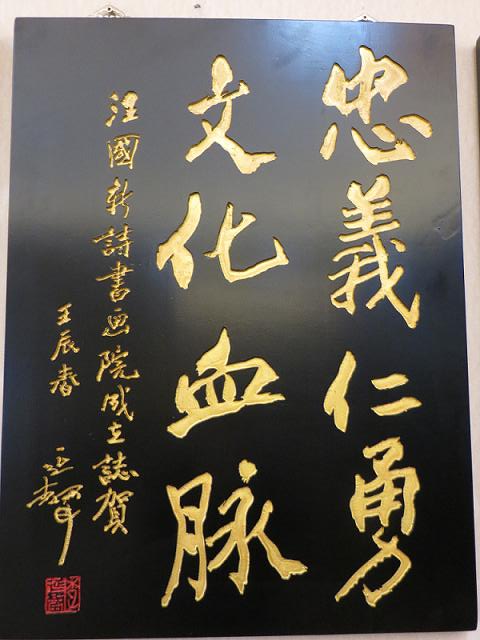 忠義仁勇
文化血脈
汪國新詩書画院成立誌賀
壬辰春